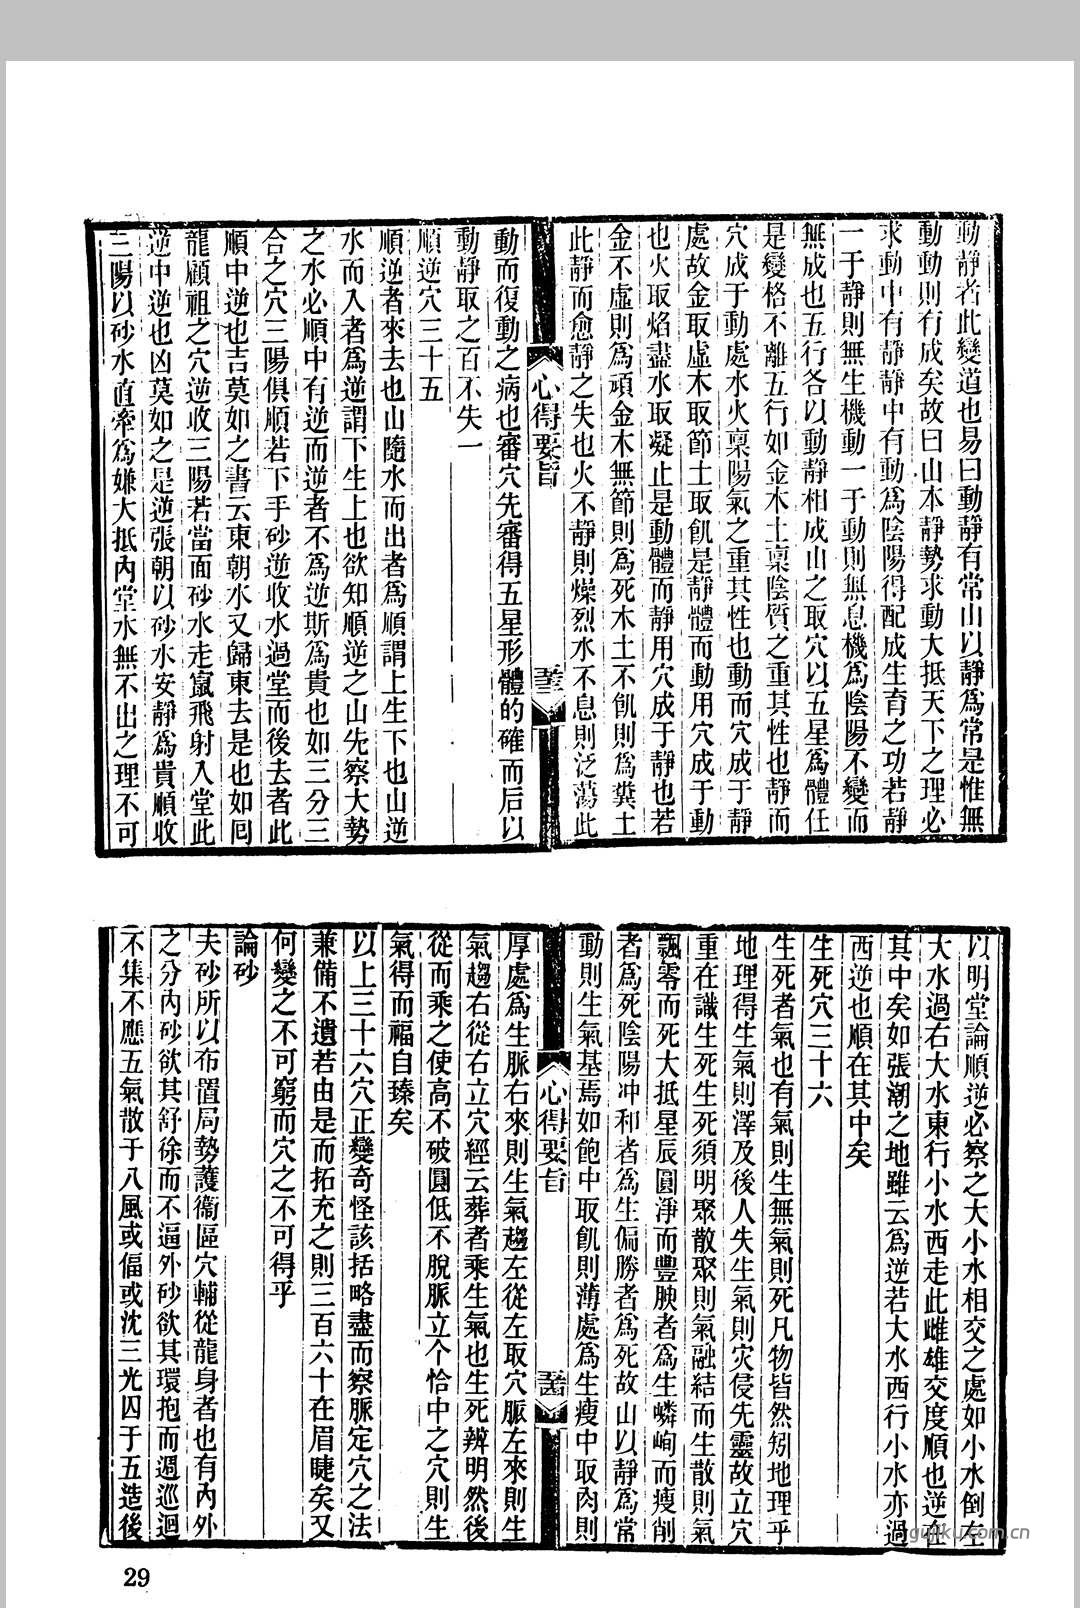 動靜者此變道也易曰動靜有常山以靜爲常是惟無
動動則有成矣故曰山本靜勢求動大抵天下之理必
求動中有靜靜中有動爲陰陽得配成生育之功若靜
一于靜則無生機動一于動則無息機爲陰陽不變而
無成也五行各以動靜相成山之取穴以五星爲體任
是變格不離五行如金木土稟陰質之重其性也靜而
穴成于動處水火稟陽氣之重其性也動而穴成于靜
處故金取虛木取節土取飢是靜體而動用穴成于動
也火取焰盡水取凝止是動體而靜用穴成于靜也若
金不虛則爲頑金木無節則爲死木土不飢則爲糞土
此靜而愈靜之失也火不靜則燥烈水不息則泛蕩此
心得要旨
動而復動之病也審穴先審得五星形體的確而后以
動靜取之百不失一
順逆穴三十五
順逆者來去也山隨水而出者爲順謂上生下也山逆
水而入者爲逆謂下生上也欲知順逆之山先察大勢
之水必順中有逆而逆者不爲逆斯爲貴也如三分三
合之穴三陽俱順若下手砂逆收水過堂而後去者此
順中逆也吉莫如之書云東朝水又歸東去是也如囘
龍顧祖之穴逆收三陽若當面砂水走竄飛射入堂此
逆中逆也凶莫如之是逆張朝以砂水安靜爲貴順收
三陽以砂水直牽爲嫌大抵內堂水無不出之理不可
以明堂論順逆必察之大小水相交之處如小水倒左
大水過右大水東行小水西走此雌雄交度順也逆在
其中矣如張潮之地雖云爲逆若大水西行小水亦過
西逆也順在其中矣
生死穴三十六
生死者氣也有氣則生無氣則死凡物皆然矧地理乎
地理得生氣則澤及後人失生氣則灾侵先靈故立穴
重在識生死生死須明聚散聚則氣融結而生散則氣
飄零而死大抵星辰圓淨而豐腴者爲生嶙峋而瘦削
者爲死陰陽冲和者爲生偏勝者爲死故山以靜爲常
動則生氣基焉如飽中取飢則薄處爲生瘦中取肉則
心得要旨
厚處爲生脈右來則生氣趨左從左取穴脈左來則生
氣趨右從右立穴經云葬者乘生氣也生死辨明然後
從而乘之使高不破圓低不脫脈立个恰中之穴則生
氣得而福自臻矣
以上三十六穴正變奇怪該括略盡而察脈定穴之法
兼備不遺若由是而拓充之則三百六十在眉睫矣又
何變之不可窮而穴之不可得乎
論砂
夫砂所以布置局勢護衞區穴輔從龍身者也有內外
之分內砂欲其舒徐而不逼外砂欲其環抱而週巡迴
不集不應五氣散于八風或偪或沈三光囚于五造後
guji.ku.com.cn
29